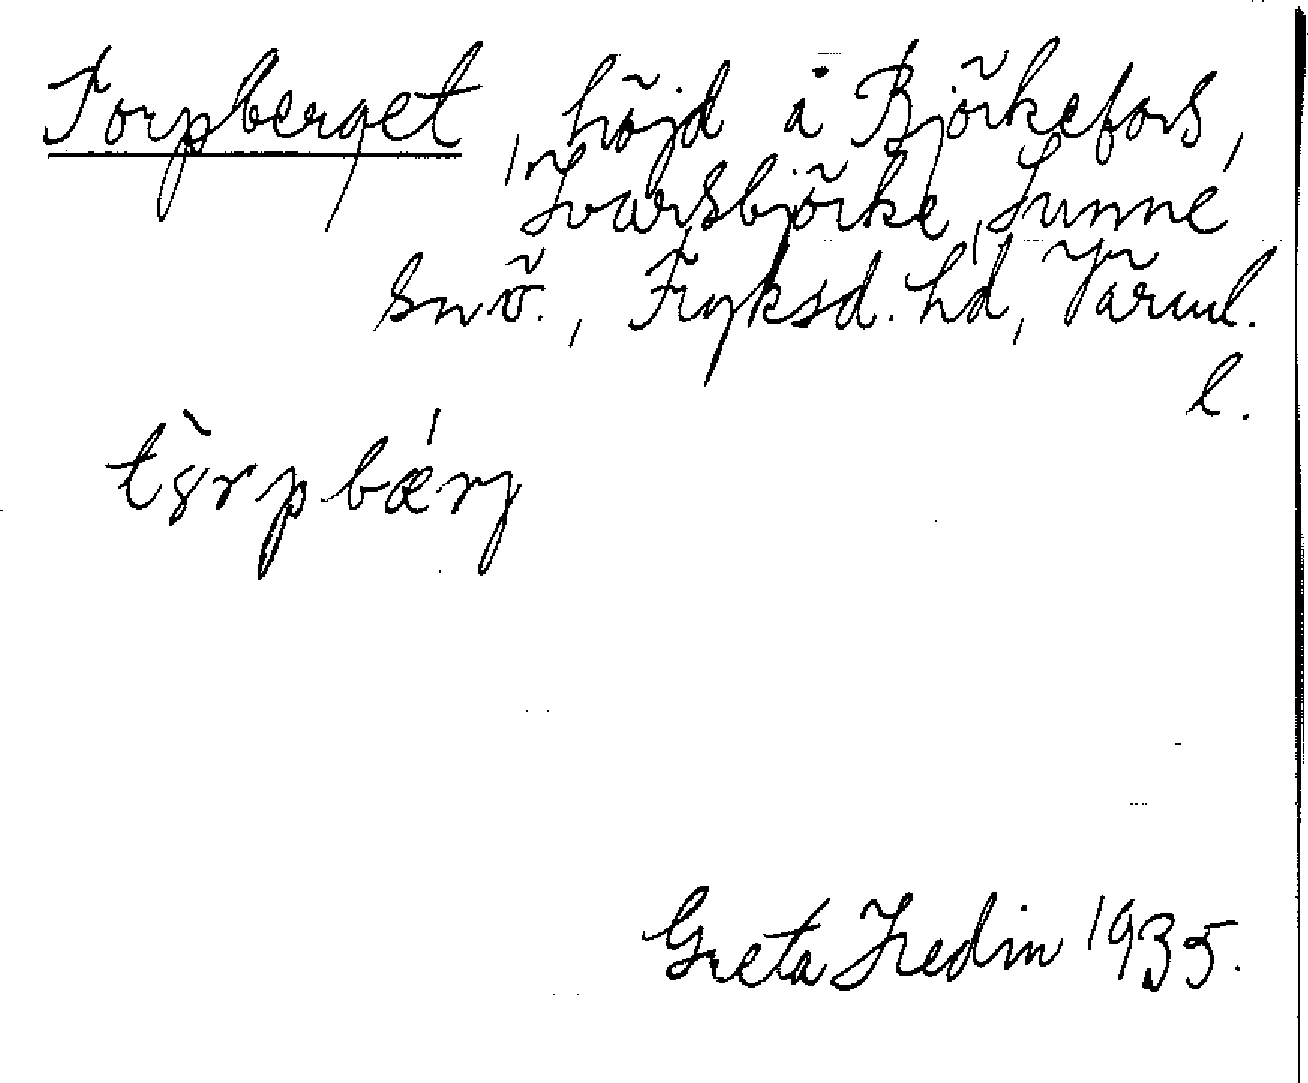 Torpberget, höjd å Björkefors,
Ivarsbjörke, Sunne
snö., Fryksd. hd, Värml.
l.
tòrpbǽrj
Greta Hedin 1935.